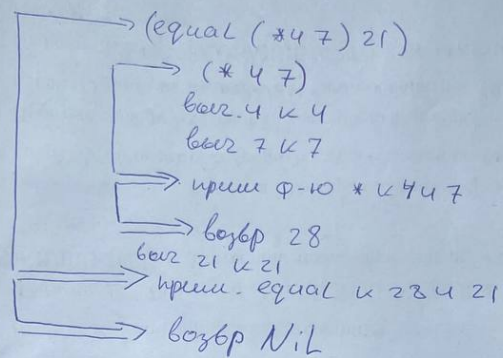 (equal (*4 7) 21)
(* 4 7)
выч. 4 к 4
выч 7 к 7
прим ф-ю * к 4 и 7
возвр 28
выч 21 к 21
прим. equal к 28 и 21
возвр Nil